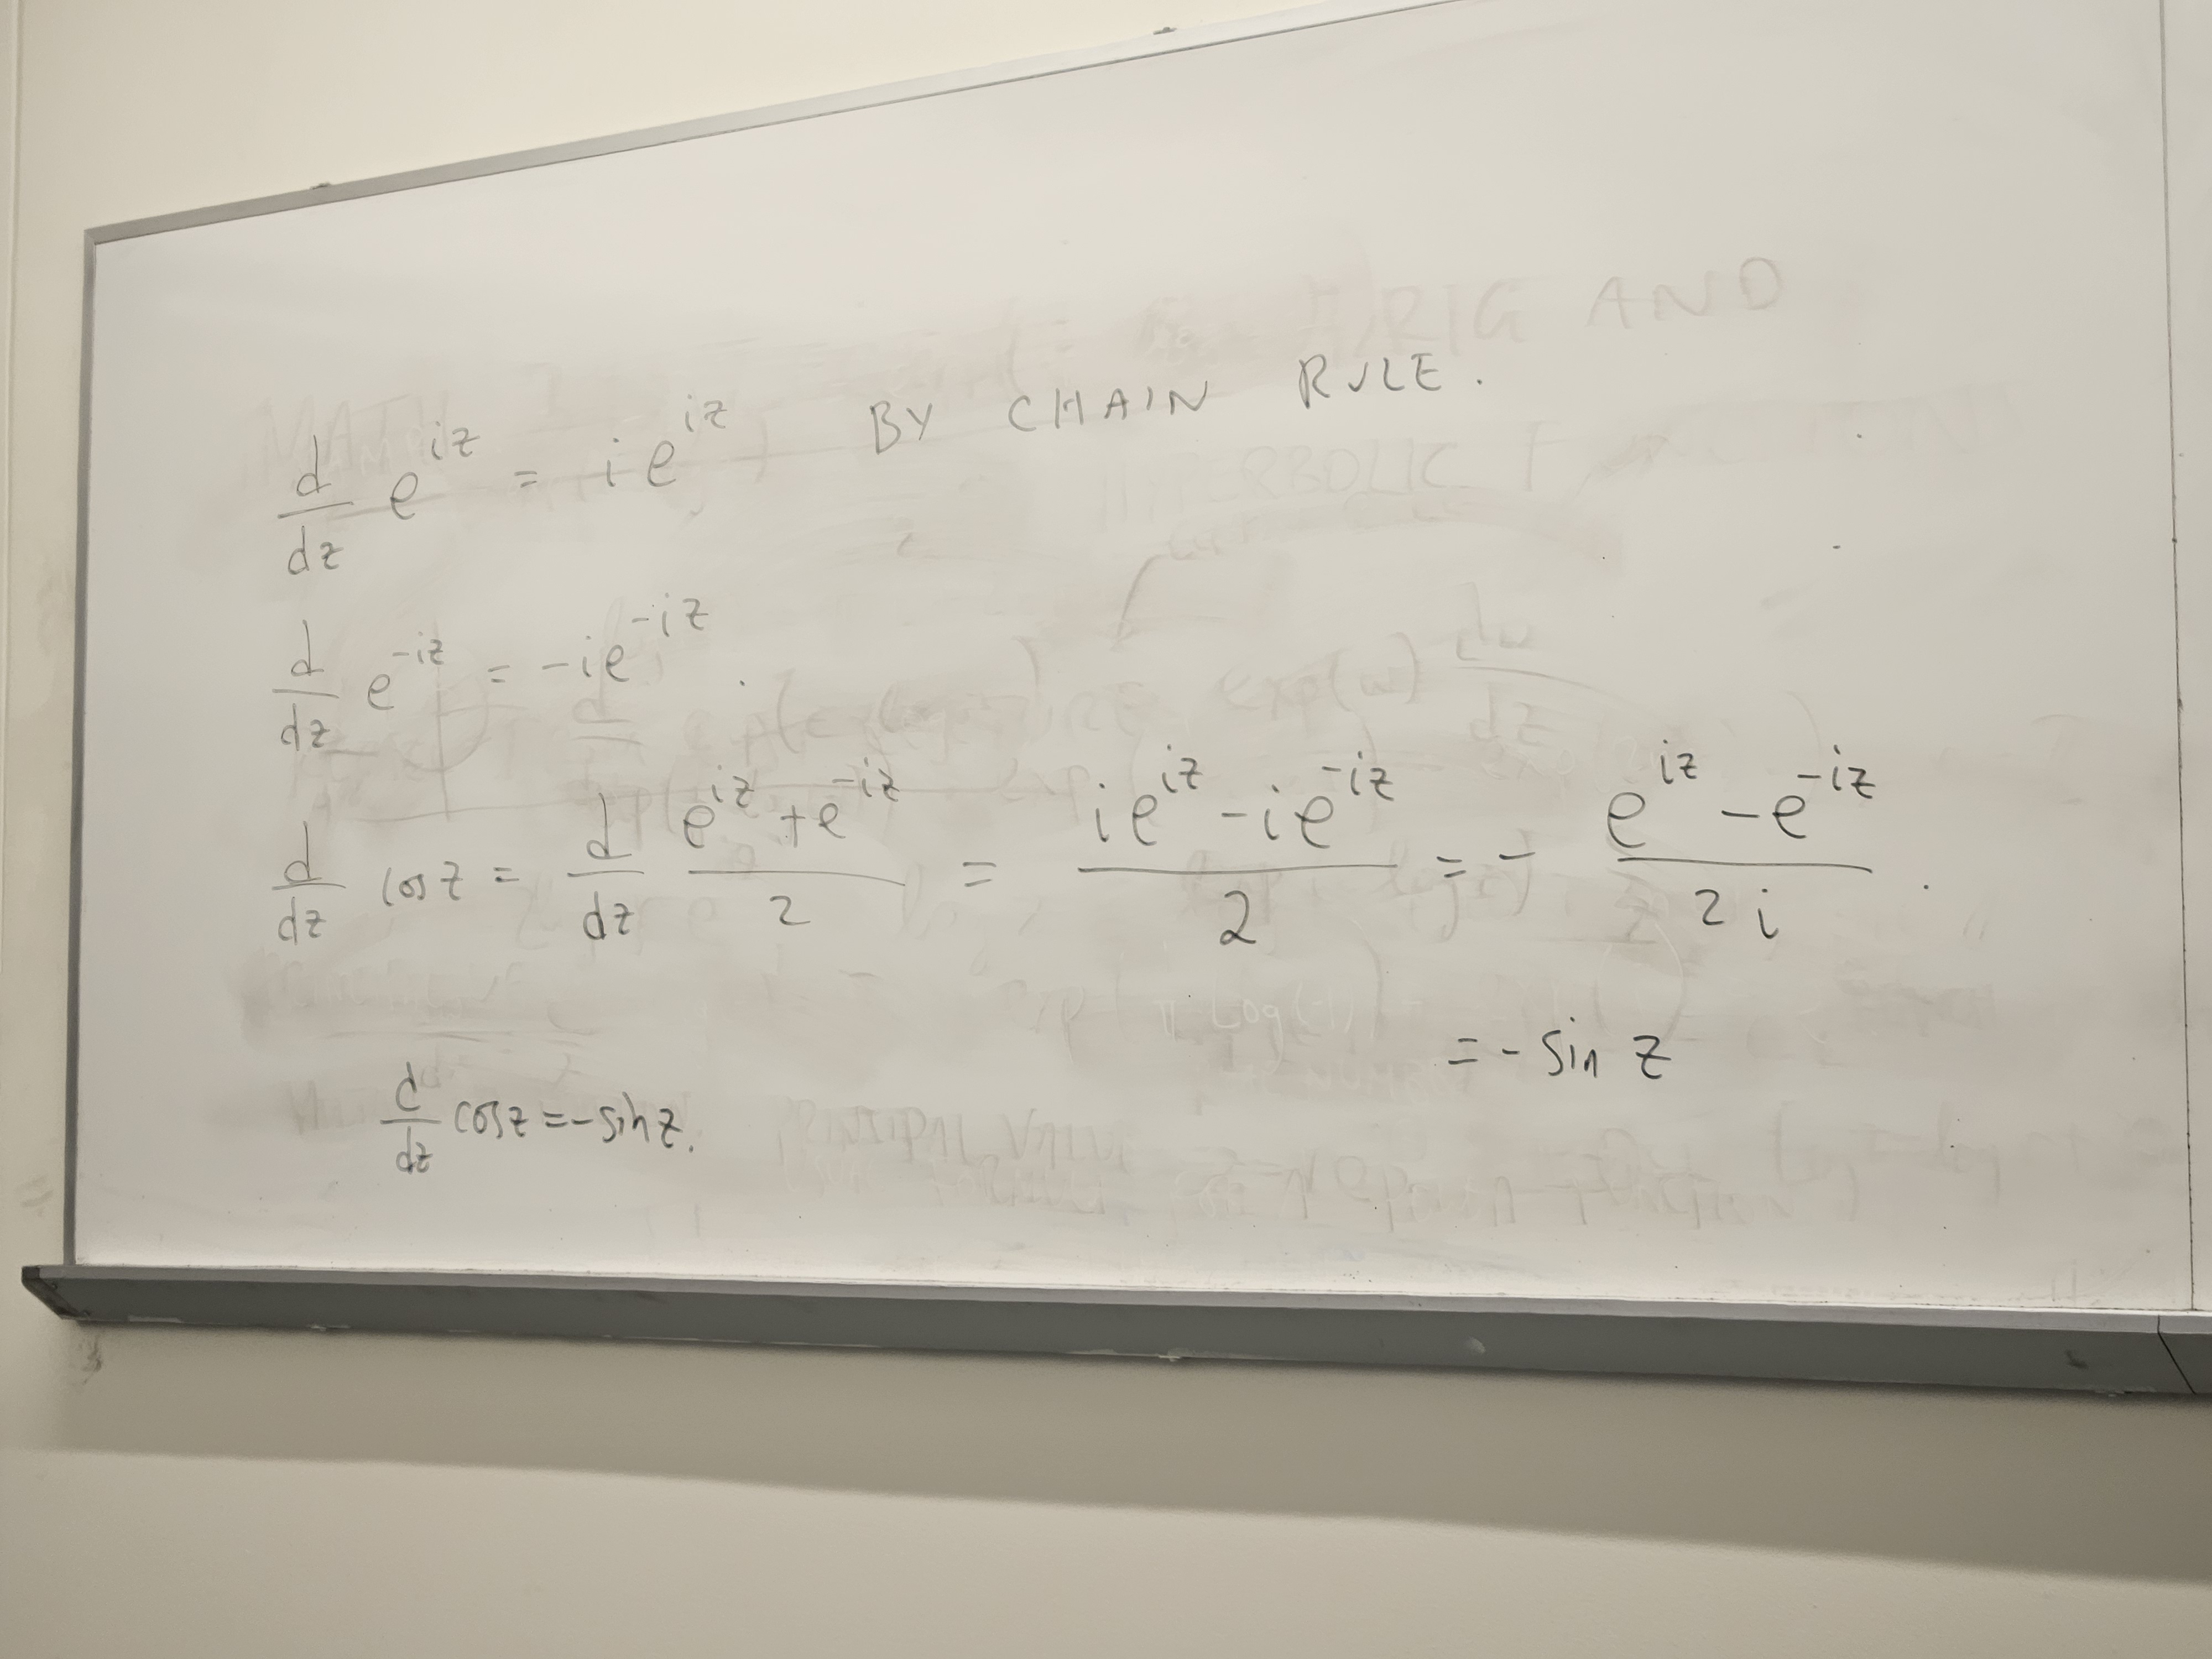 d/dz e^{iz} = i e^{iz} BY CHAIN RULE.
d/dz e^{-iz} = -ie^{-iz}.
d/dz cos z = d/dz (e^{iz} + e^{-iz})/2 = (ie^{iz} - ie^{-iz})/2 = - (e^{iz} - e^{-iz})/2i.
= - sin z
d/dz cos z = - sin z.